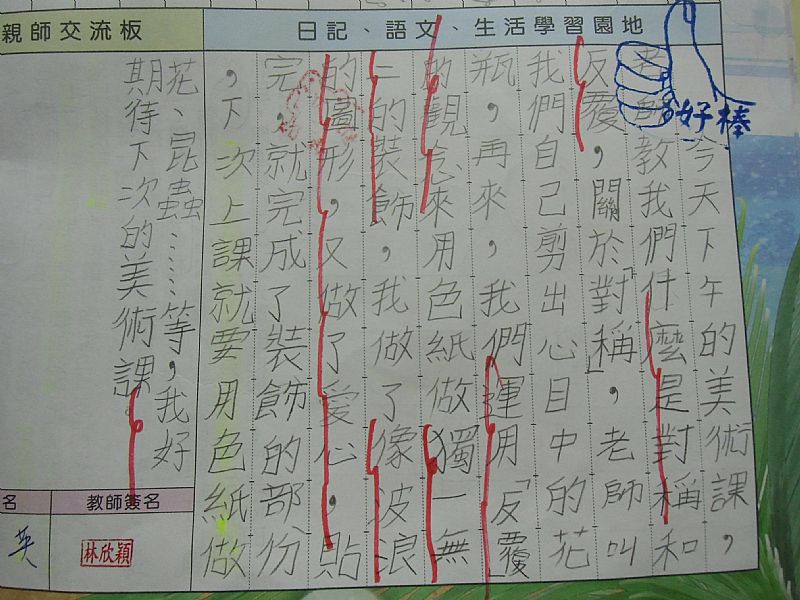 親師交流板
日記、語文、生活學習園地
好棒
今天下午的美術課，
老師教我們什麼是對稱和
反覆，關於「對稱」，老師叫
我們自己剪出心目中的花
瓶，再來，我們運用「反覆」
的觀念來用色紙做獨一無
二的裝飾，我做了像波浪
的圖形，又做了愛心，貼
完，就完成了裝飾的部份
，下次上課就要用色紙做
花、昆蟲……等，我好
期待下次的美術課。
名
教師簽名
英
林欣穎